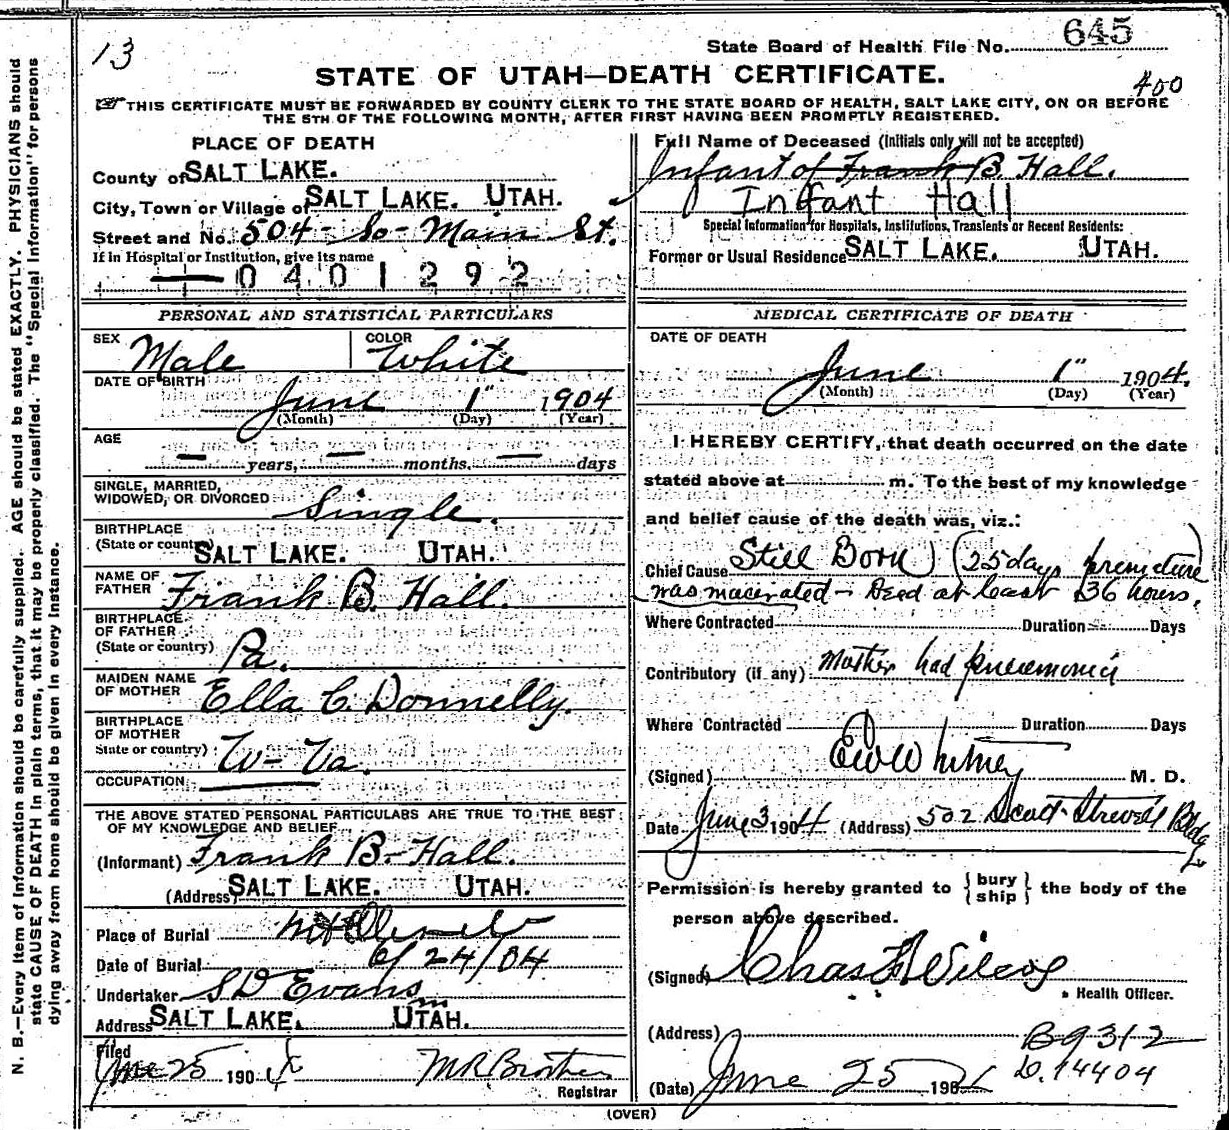 13
State Board of Health File No. 645
STATE OF UTAH—DEATH CERTIFICATE.
400
THIS CERTIFICATE MUST BE FORWARDED BY COUNTY CLERK TO THE STATE BOARD OF HEALTH, SALT LAKE CITY, ON OR BEFORE
THE 5TH OF THE FOLLOWING MONTH, AFTER FIRST HAVING BEEN PROMPTLY REGISTERED.
PLACE OF DEATH
County of SALT LAKE.
City, Town or Village of SALT LAKE. UTAH.
Street and No. 504 - So - Main St.
If in Hospital or Institution, give its name
0401292
Full Name of Deceased (Initials only will not be accepted)
Infant of Frank B. Hall.
Infant Hall
Special Information for Hospitals, Institutions, Transients or Recent Residents:
Former or Usual Residence SALT LAKE. UTAH.
PERSONAL AND STATISTICAL PARTICULARS
SEX Male COLOR White
DATE OF BIRTH
June 1" 1904
(Month) (Day) (Year)
AGE
— years, — months, — days
SINGLE, MARRIED,
WIDOWED, OR DIVORCED Single.
BIRTHPLACE
(State or country) SALT LAKE. UTAH.
NAME OF
FATHER Frank B. Hall.
BIRTHPLACE
OF FATHER
(State or country) Pa.
MAIDEN NAME
OF MOTHER Ella C. Donnelly.
BIRTHPLACE
OF MOTHER
State or country) W-Va.
OCCUPATION
THE ABOVE STATED PERSONAL PARTICULARS ARE TRUE TO THE BEST
OF MY KNOWLEDGE AND BELIEF
(Informant) Frank B. Hall.
(Address) SALT LAKE. UTAH.
Place of Burial Mt Olivet
Date of Burial 6/24/04
Undertaker S D Evans
Address SALT LAKE, UTAH.
Filed
June 25 1904 M R Brothers
Registrar
MEDICAL CERTIFICATE OF DEATH
DATE OF DEATH
June 1" 1904.
(Month) (Day) (Year)
I HEREBY CERTIFY, that death occurred on the date
stated above at m. To the best of my knowledge
and belief cause of the death was, viz.:
Chief Cause Still Born) (25 days premature)
was macerated - Dead at least 36 hours.
Where Contracted Duration Days
Contributory (if any) Mother had pneumonia
Where Contracted Duration Days
(Signed) E W Whitney M. D.
Date June 3 1904 (Address) 502 Scott-Strevell Bldg
Permission is hereby granted to {bury
ship} the body of the
person above described.
(Signed) Chas F Wilcox
Health Officer.
(Address) B 9312
(Date) June 25 1904 D. 14404
(OVER)
N. B.—Every item of information should be carefully supplied. AGE should be stated EXACTLY. PHYSICIANS should
state CAUSE OF DEATH in plain terms, that it may be properly classified. The "Special Information" for persons
dying away from home should be given in every instance.